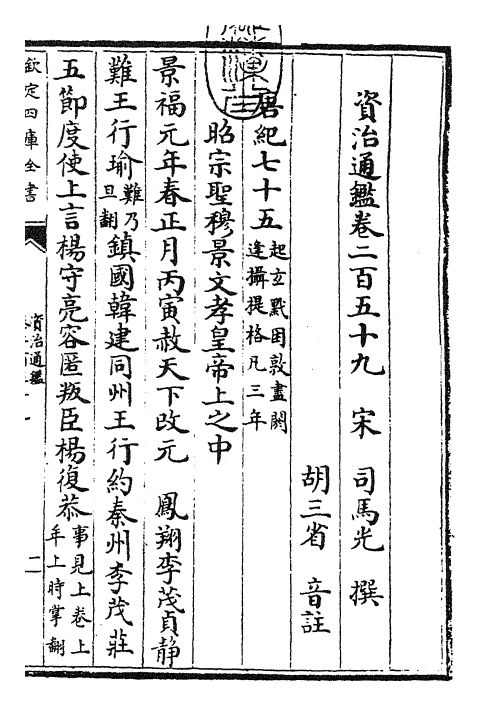 資治通鑑卷二百五十九　宋　司馬光　撰
胡三省　音註
唐紀七十五起玄黓困敦盡閼逢攝提格凡三年
昭宗聖穆景文孝皇帝上之中
景福元年春正月丙寅赦天下改元　鳳翔李茂貞靜
難王行瑜難乃旦翻鎮國韓建同州王行約秦州李茂莊
五節度使上言楊守亮容匿叛臣楊復恭事見上卷上年上時掌翻
欽定四庫全書
資治通鑑